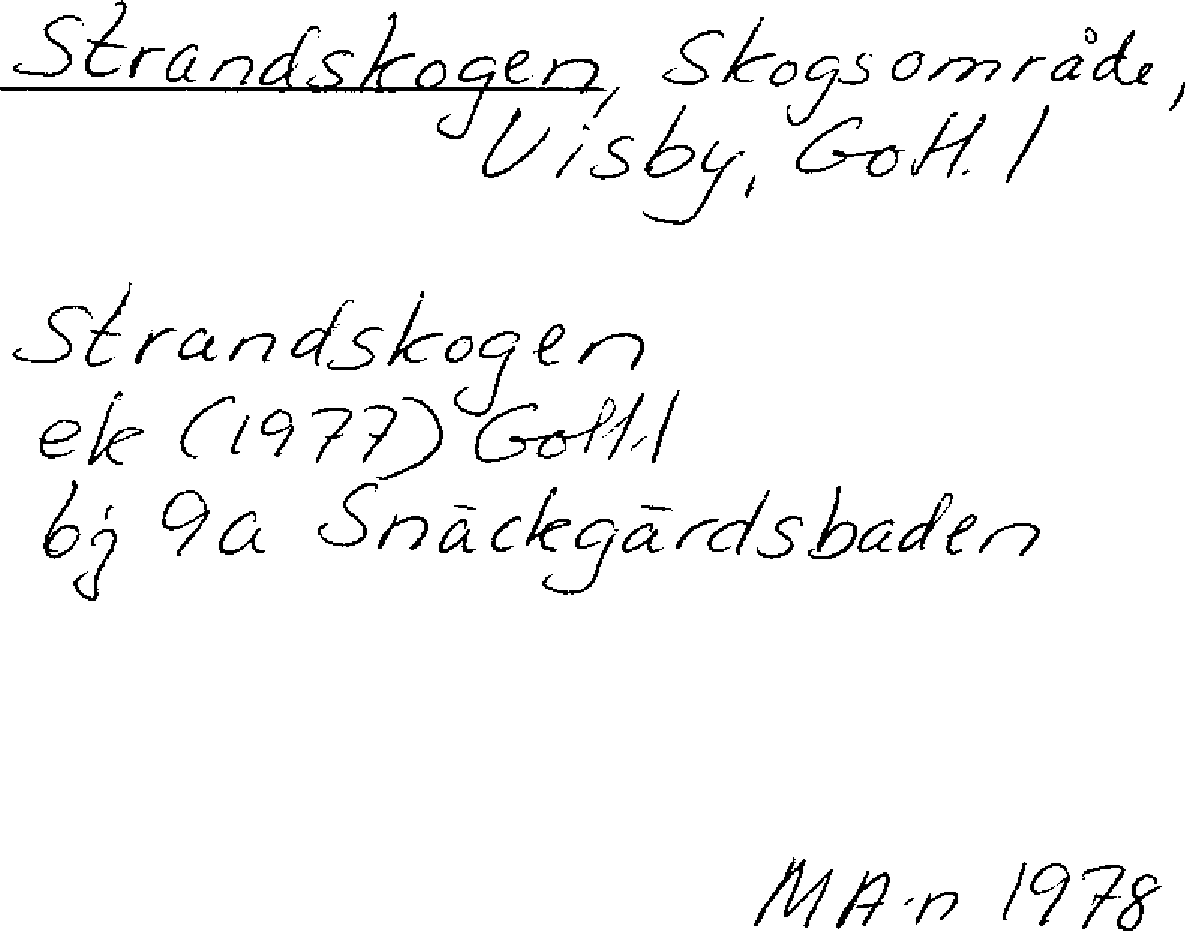 Strandskogen, Skogsområde,
Visby, Gotl. l
Strandskogen
ek (1977) Gotl. l
bj 9a Snäckgärdsbaden
MA·n 1978